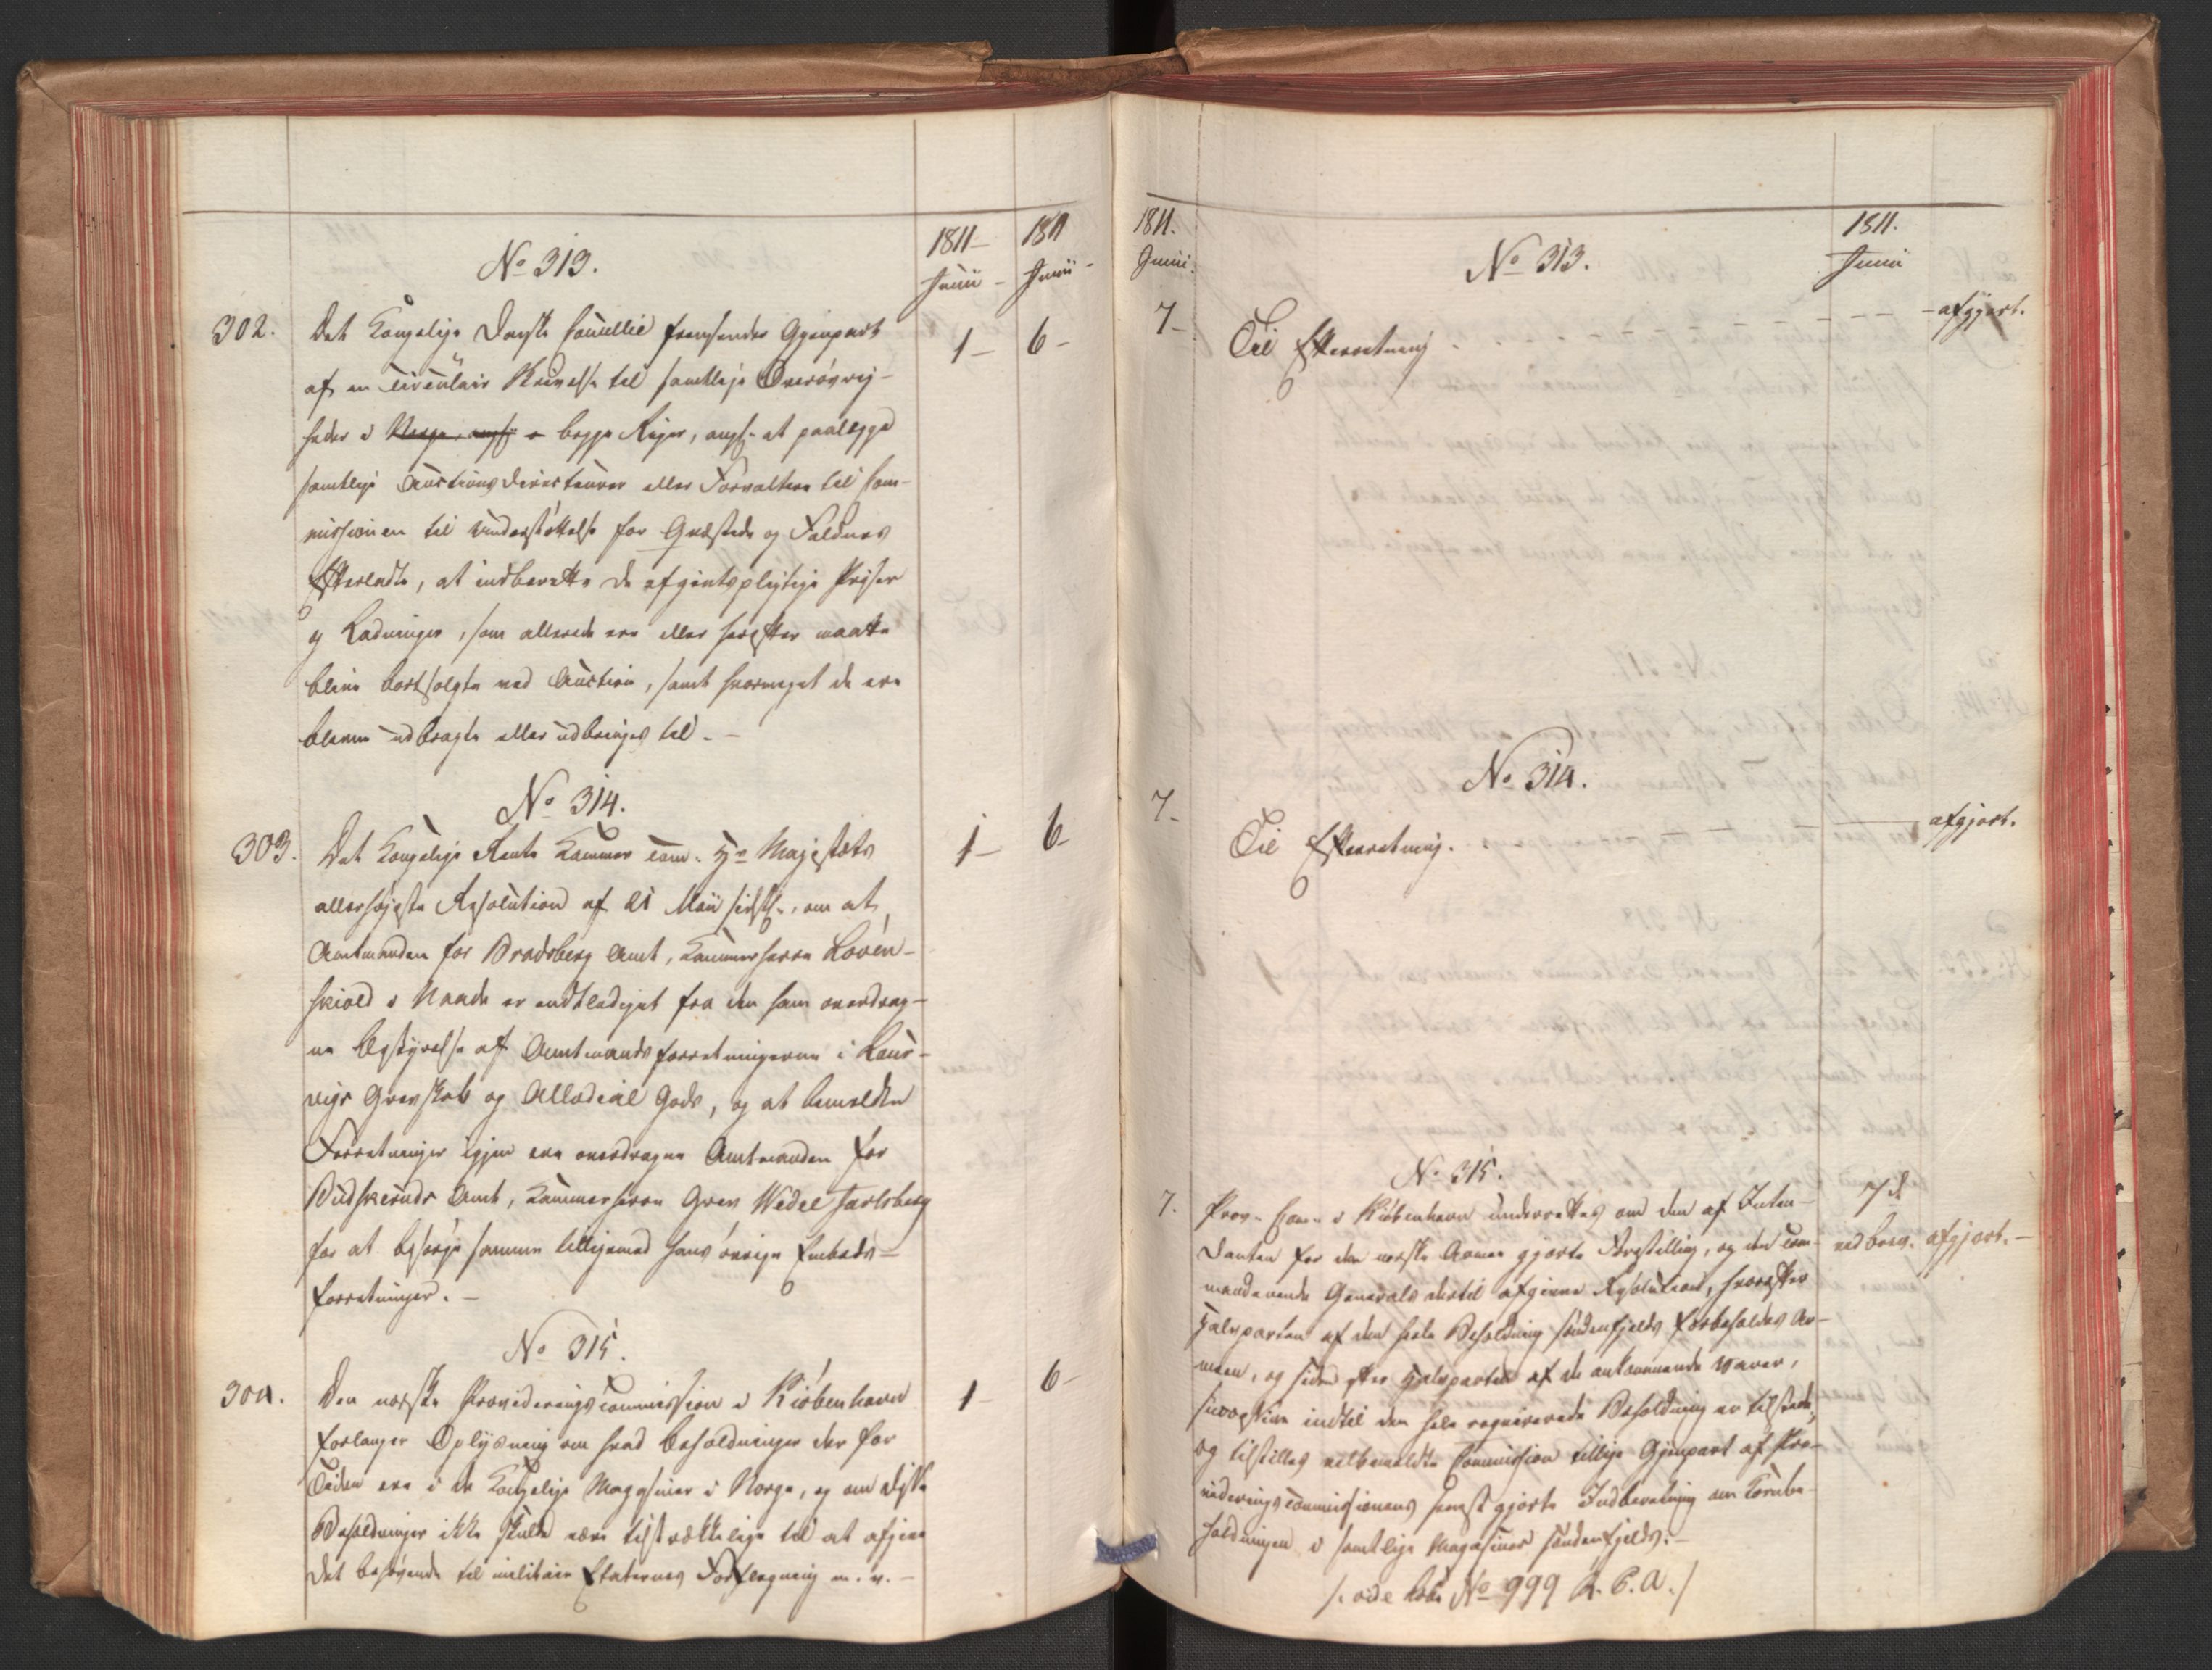 1811
Junii
1811
Junii
No 313.
302.
Det Kongelige Danske Cancellie fremsender Gjenpart
1
6
af en circulair Skrivelse til samtlige Overøvrig-
heder i Norge, angs: begge Riger, angs: at paalægge
samtlige Auctionsdirecteurer eller Forvaltere til Com-
missionen til Understøttelse for Qvæstede og Faldnes
Efterladte, at indberette de afgivtspligtige Priser
og Ladninger, som allerede ere eller herefter maatte
blive bortsolgte ved Auction, samt hvormeget de ere
blevne udbragte eller udbringes til.
No 314.
303.
Det Kongelige Rente Kammer com: Hs Majestæts
1
6
allerhøjeste Resolution af 21 Maii sidstl:, om at
Amtmanden for Bradsberg Amt, Kammerherre Løven-
skiold i Naade er endtlediget fra den ham overdrag-
ne Bestyrelse af Amtmandsforretningerne i Laur-
vigs Grevskab og Allodial Gods, og at bemeldte
Forretninger igjen ere overdragne Amtmanden for
Budskeruds Amt, Kammerherre Grev Wedel Jarlsberg
for at besørge samme tilligemed hans øvrige Embeds-
forretninger.
No 315.
304.
Den norske Provideringscommission i Kiøbenhavn
1
6
forlanger Oplysning om hvad Beholdninger der for
Tiden ere i de Kongelige Magasiner i Norge, og om disse
Beholdninger ikke skulde være tilstrækkelige til at afgive
det behøvende til militaire Etaternes Forflegning m. v.
1811.
Junii
No 313.
1811.
Junii
7
Til Efterretning
afgjort.
No 314.
7
Til Efterretning.
afgjort.
No 315.
7.
Prov: Com: i Kiøbenhavn underrettes om den af Inten-
7de
danten for den norske Armee gjorte Forestilling, og den com-
ved brev. afgjort.
manderende Generals dertil afgivne Resolution, hvorefter
Halvparten af den hele Beholdning søndenfjelds forbeholdes Ar-
meen, og siden efter Halvparten af de ankommende Varer,
successive indtil den hele reqvirerede Beholdning er tilstede,
og tilstilles velbemeldte Commission tillige Gjenpart af Pro-
videringscommissionens senest gjorte Indberetning om Kornbe-
holdningen i samtlige Magasiner søndenfjelds.
/: vide No 999 A. :/